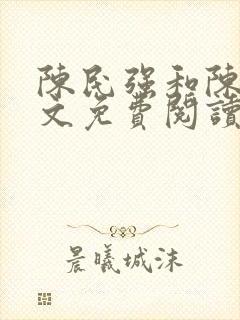 陳民強和陳
文免費閱讀
晨曦城沫